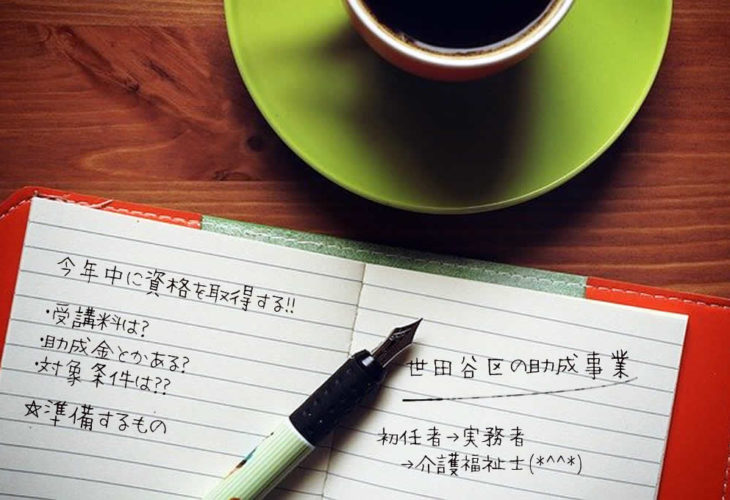 今年中に資格を取得する!!
・受講料は?
・助成金とかある?
・対象条件は??
☆準備するもの
世田谷区の助成事業
初任者→実務者
→介護福祉士(*^^*)